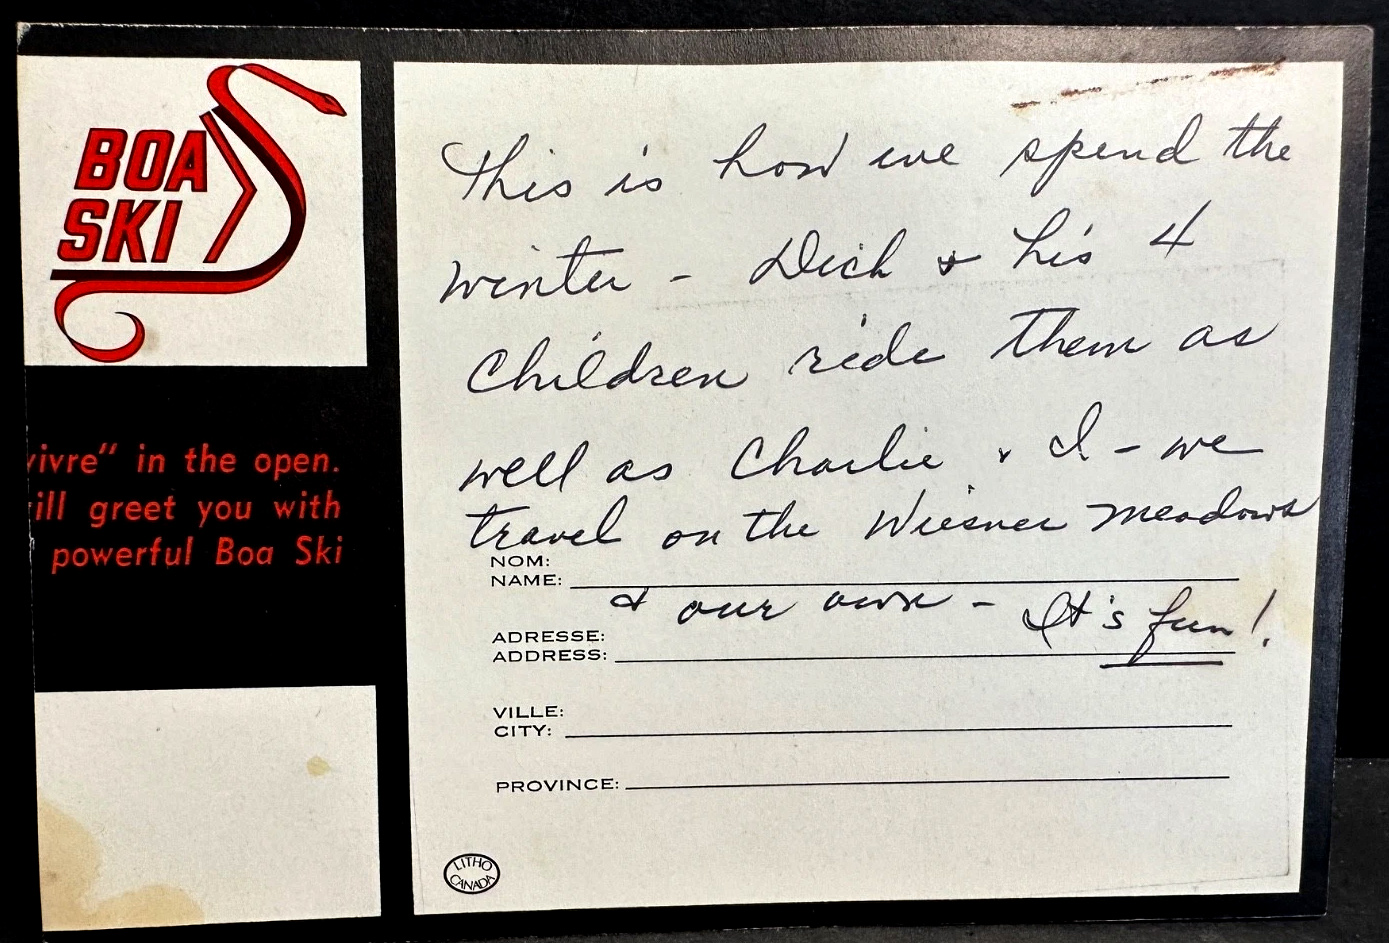 BOA
SKI
vivre" in the open.
ill greet you with
powerful Boa Ski
This is how we spend the
winter - Dick & his 4
Children ride them as
well as Charlie & I - we
travel on the Wiesner meadows
& our own - It's fun!
NOM:
NAME:
ADRESSE:
ADDRESS:
VILLE:
CITY:
PROVINCE:
LITHO
CANADA